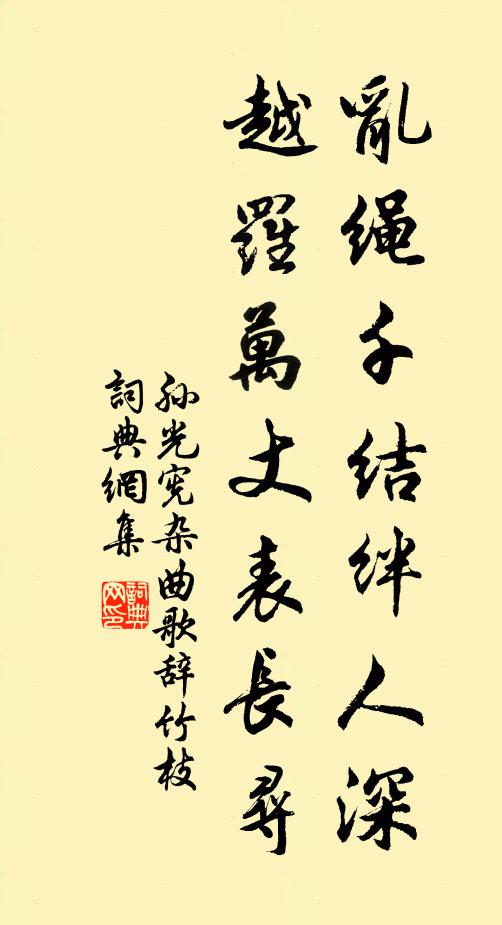 亂繩千結絆人深
越羅萬丈表長尋
孙光宪杂曲歌辞竹枝
詞典網集
詞典网印